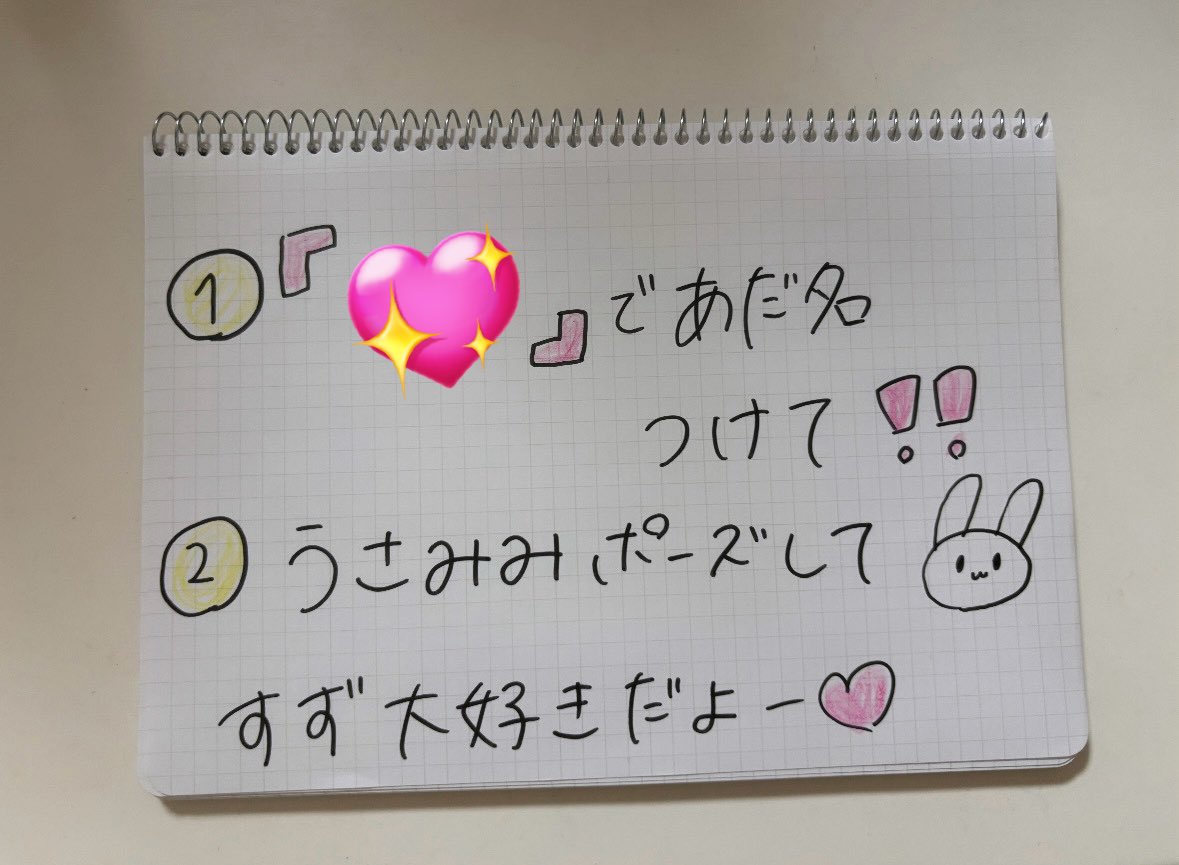 ① 『💖』であだ名
つけて!!
② うさみみポーズして
すず大好きだよー♡